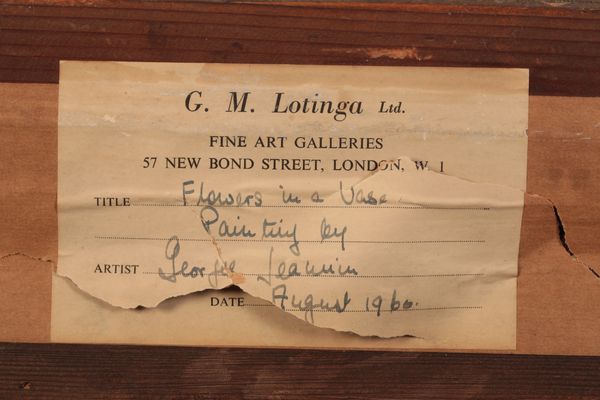 G. M. Lotinga Ltd.
FINE ART GALLERIES
57 NEW BOND STREET, LONDON, W. 1
TITLE Flowers in a Vase.
Painting by
ARTIST Georgie Jeannin
DATE August 1960.